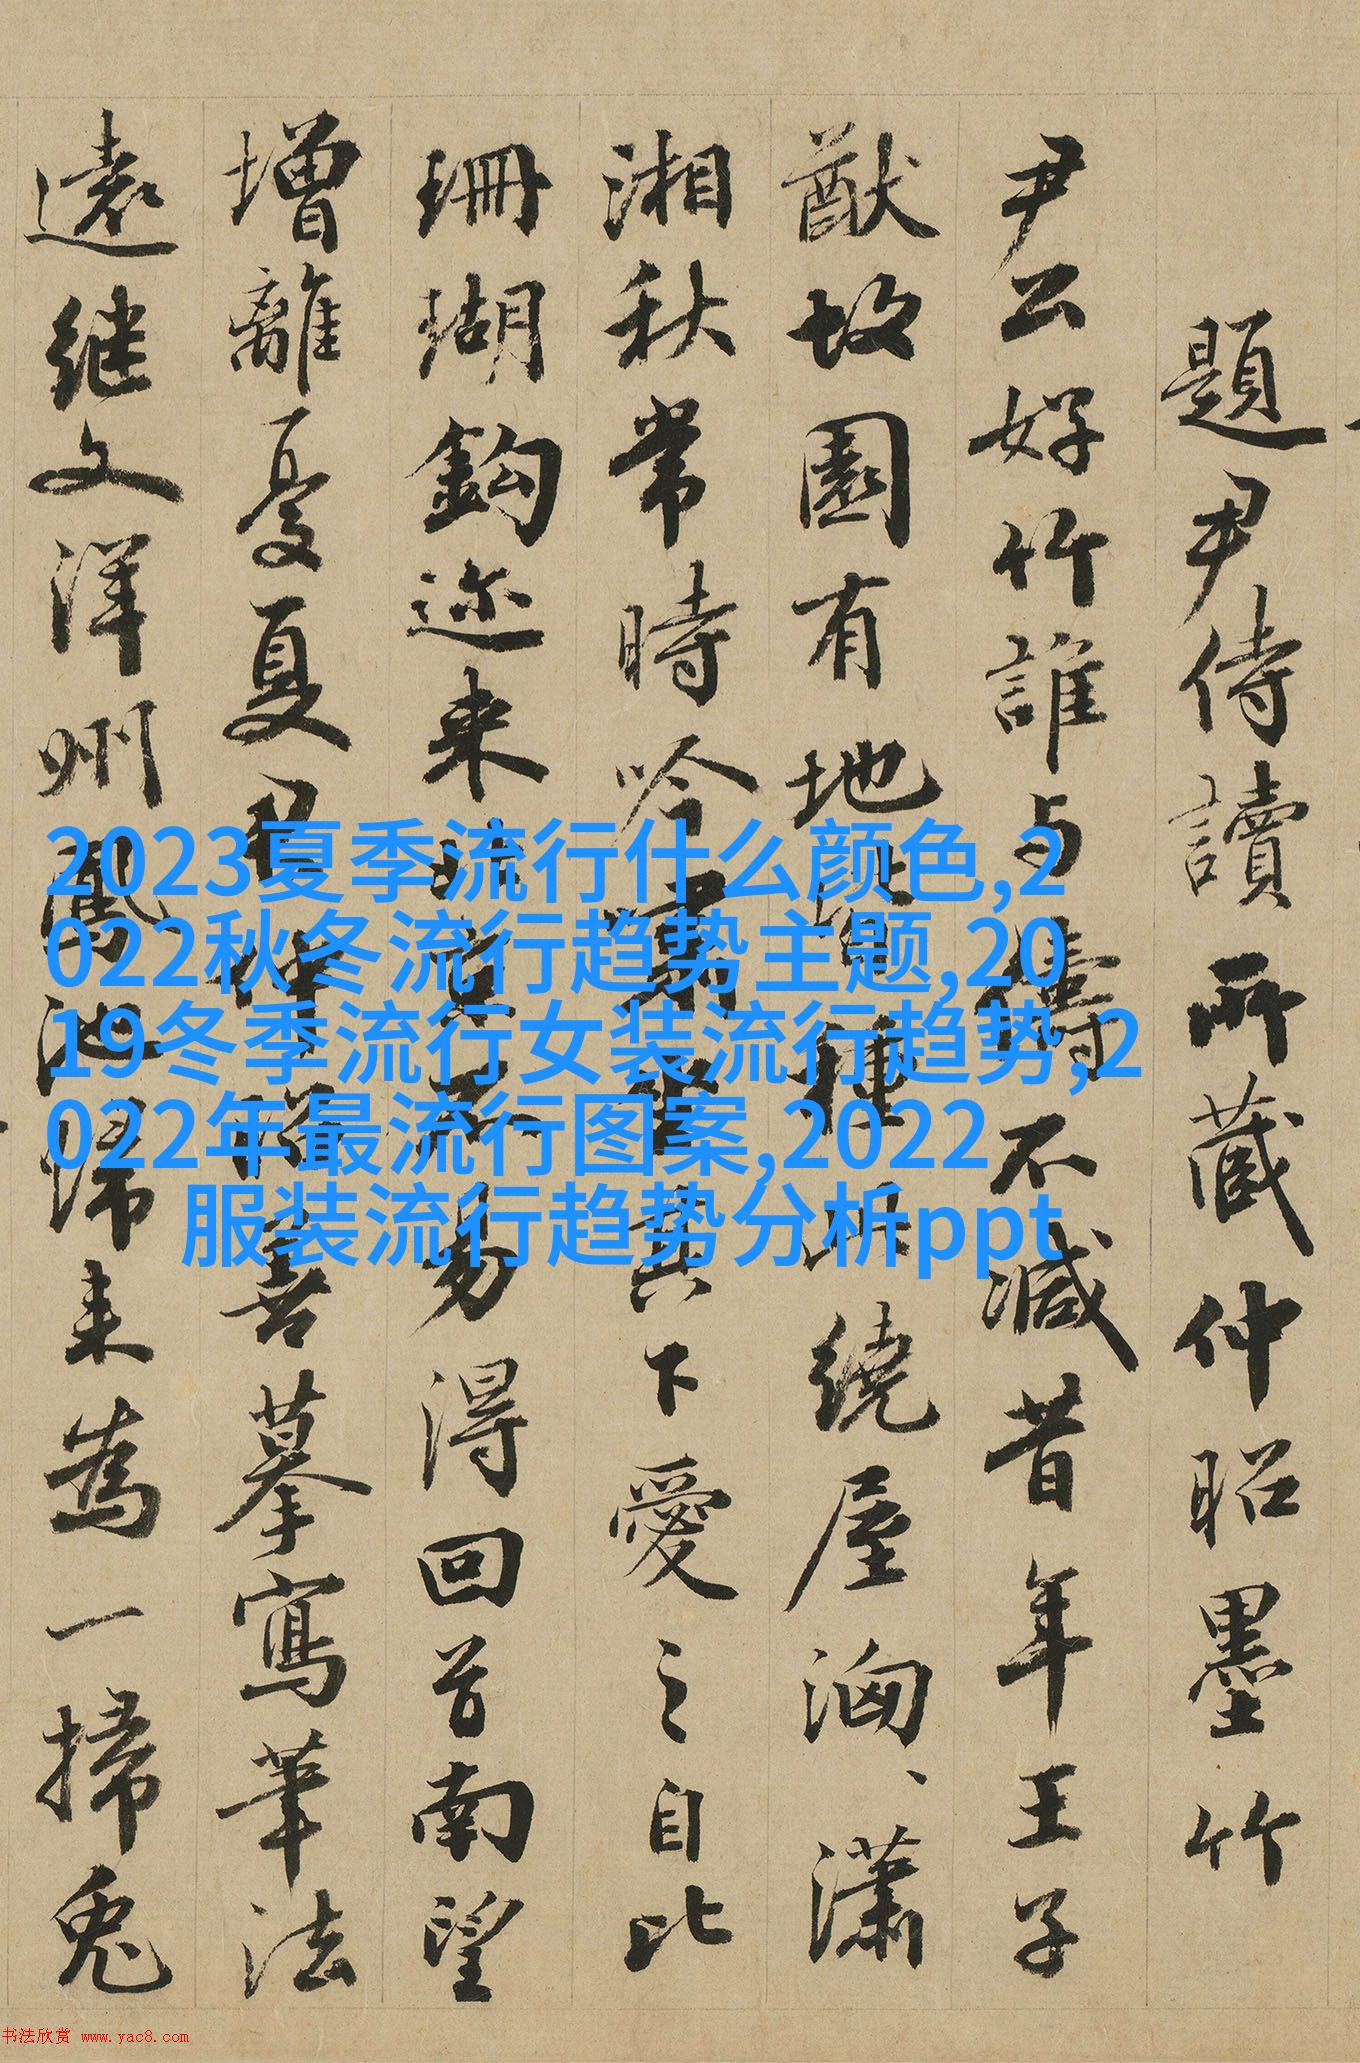 題尹侍讀所藏仲昭墨竹
尹公好竹誰与儔不減昔年王子
猷故園有地皆種此繞屋洶、瀟
湘秋常時吟嘯坐其下愛之自比
珊瑚鈎迩来其不易得回首南望
增離憂夏君仲昭喜摹寫筆法
遠继文洋州鳳池歸来為一掃兔
2023夏季流行什么颜色,2
022秋冬流行趋势主题,20
19冬季流行女装流行趋势,2
022年最流行图案,2022
服装流行趋势分析ppt
书法欣赏 www.yac8.com